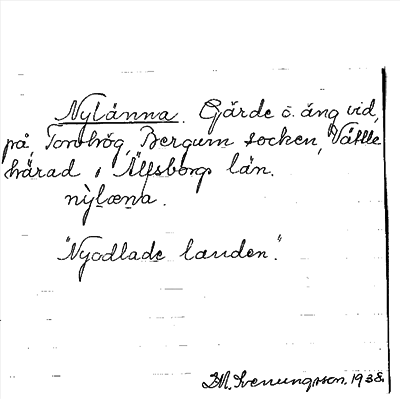 Nylänna. Gärde o. äng vid,
på Tomhög, Bergum socken, Vättle
härad i Älfsborgs län.
nỳlæna.
"Nyodlade landen."
M. Svenungsson. 1938.